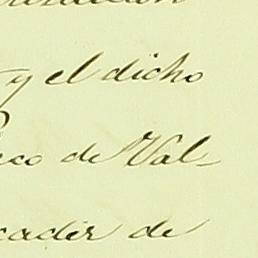 y el dicho
eco de Val-
cader de